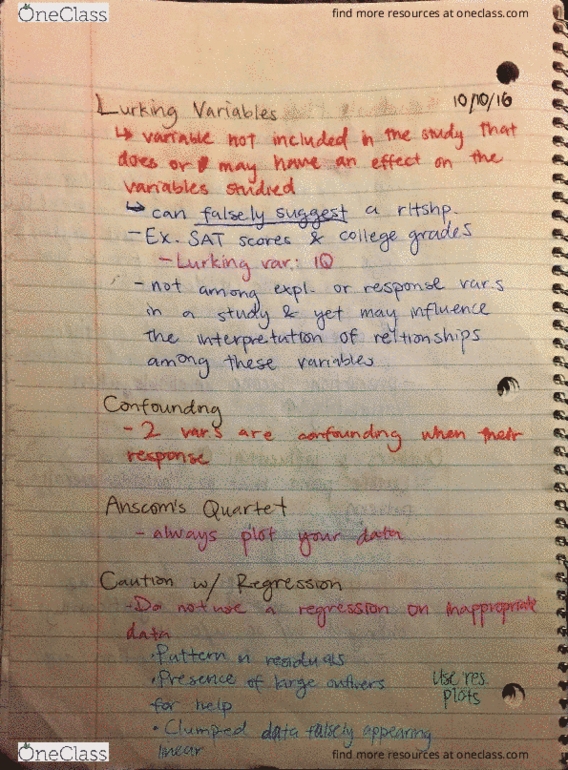 OneClass
find more resources at oneclass.com
Lurking Variables
10/10/16
↳ variable not included in the study that
does or may have an effect on the
variables studied
↳ can falsely suggest a rltshp.
- Ex. SAT scores & college grades
- Lurking var: IQ
- not among expl. or response var.s
in a study & yet may influence
the interpretation of reltionships
among these variables
Confoundng
- 2 var.s are confoundng when their
response
Anscom's Quartet
- always plot your data
Caution w/ Regression
- Do not use a regression on inappropriate
data
• Pattern n residuals
• Presence of large outliers
for help
Use res.
plots
• Clumped data falsely appearing
linear
OneClass
find more resources at oneclass.com